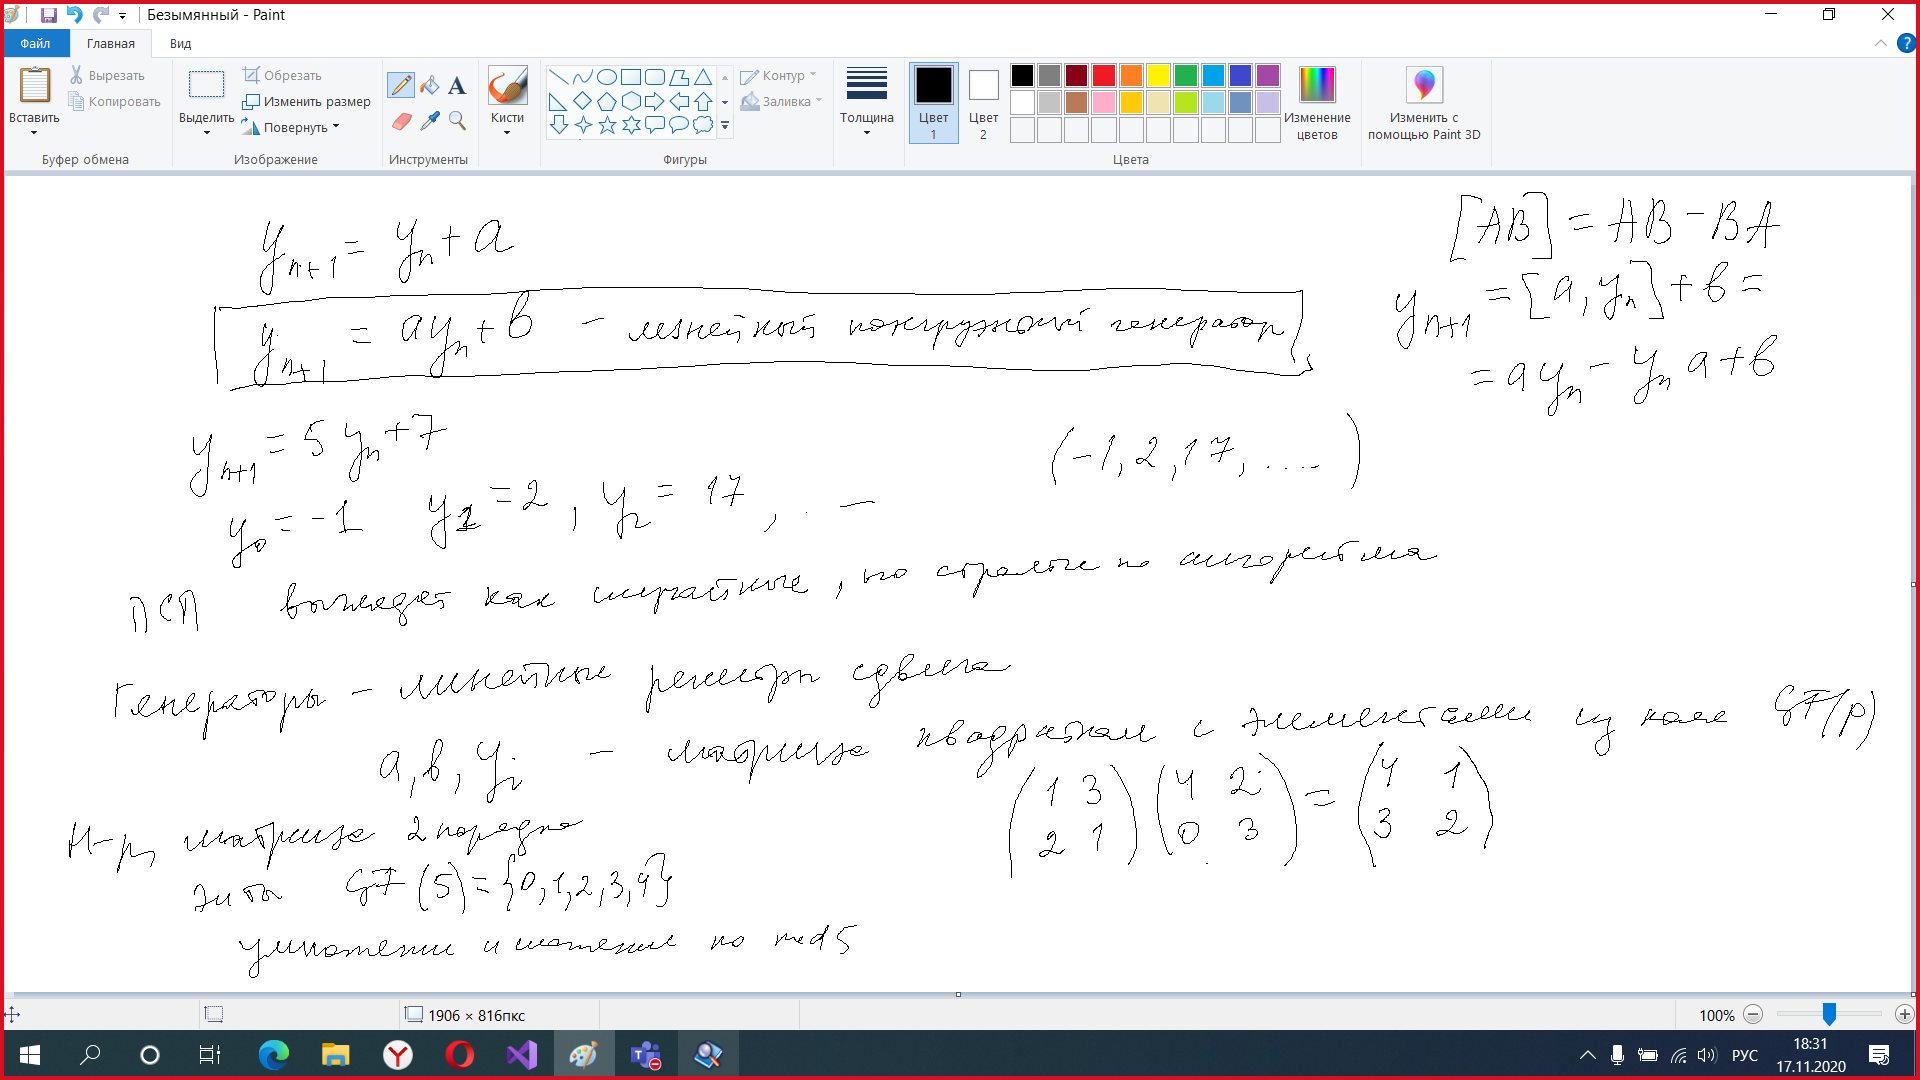 Безымянный - Paint
Файл Главная Вид
Вставить
Вырезать
Копировать
Буфер обмена
Выделить
Обрезать
Изменить размер
Повернуть
Изображение
Инструменты
Кисти
Фигуры
Контур
Заливка
Толщина
Цвет 1
Цвет 2
Изменение цветов
Цвета
Изменить с помощью Paint 3D
yₙ₊₁ = yₙ + a
yₙ₊₁ = ayₙ + b - линейный конгруэнтный генератор
[AB] = AB - BA
yₙ₊₁ = [a, yₙ] + b =
= ayₙ - yₙ a + b
yₙ₊₁ = 5yₙ + 7
y₀ = -1 y₁ = 2, y₂ = 17, . —
(-1, 2, 17, ....)
ПСП выглядят как случайные, но строятся по алгоритма
Генераторы - линейные регистры сдвига
a, b, yᵢ - матрицы квадратные с элементами из поля GF(p)
Н-р, матрица 2 порядка
Эл-ты GF(5) = {0, 1, 2, 3, 4}
умножение и сложение по mod 5
(1 3
2 1) (4 2
0 3) = (4 1
3 2)
1906 × 816пкс
100%
РУС
18:31
17.11.2020